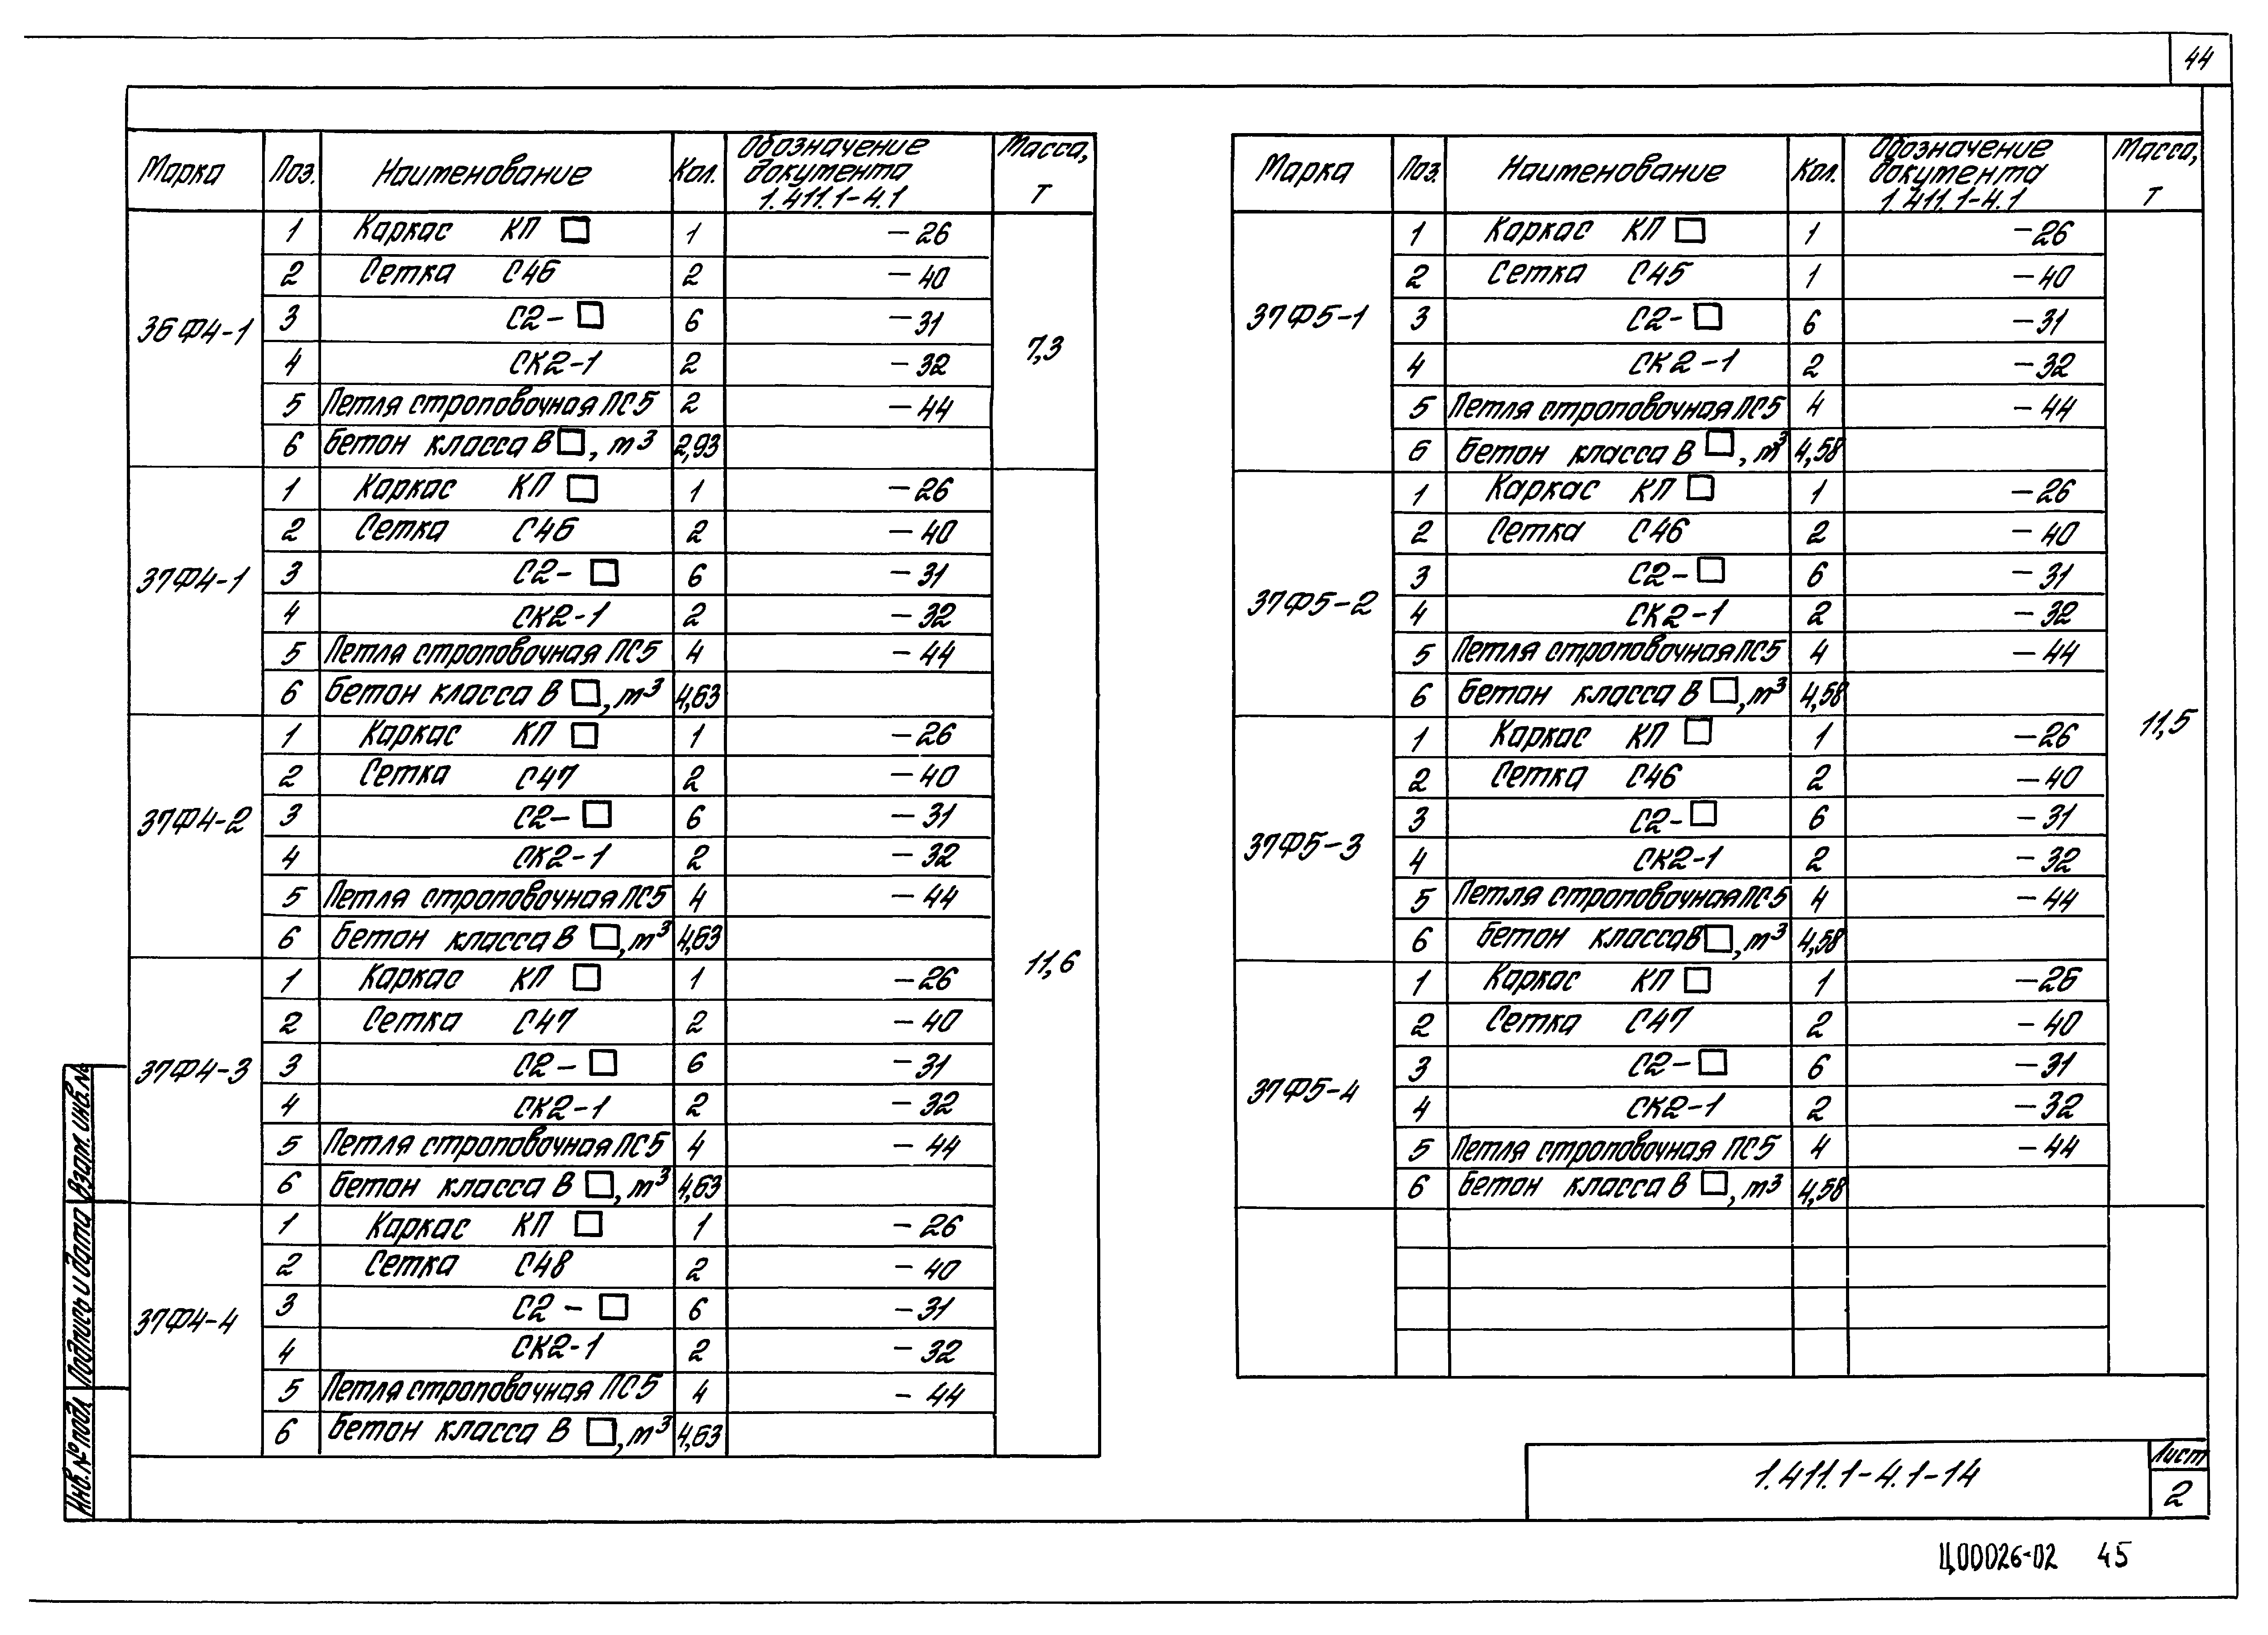 44
Марка Поз. Наименование Кол. Обозначение документа 1.411.1-4.1 Масса, т
36Ф4-1 7,3
1 Каркас КП □ 1 -26
2 Сетка С46 2 -40
3 С2-□ 6 -31
4 СК2-1 2 -32
5 Петля строповочная ПС5 2 -44
6 Бетон класса В □, м³ 2,93
37Ф4-1 11,6
1 Каркас КП □ 1 -26
2 Сетка С46 2 -40
3 С2-□ 6 -31
4 СК2-1 2 -32
5 Петля строповочная ПС5 4 -44
6 Бетон класса В □, м³ 4,63
37Ф4-2
1 Каркас КП □ 1 -26
2 Сетка С47 2 -40
3 С2-□ 6 -31
4 СК2-1 2 -32
5 Петля строповочная ПС5 4 -44
6 Бетон класса В □, м³ 4,63
37Ф4-3
1 Каркас КП □ 1 -26
2 Сетка С47 2 -40
3 С2-□ 6 -31
4 СК2-1 2 -32
5 Петля строповочная ПС5 4 -44
6 Бетон класса В □, м³ 4,63
37Ф4-4
1 Каркас КП □ 1 -26
2 Сетка С48 2 -40
3 С2-□ 6 -31
4 СК2-1 2 -32
5 Петля строповочная ПС5 4 -44
6 Бетон класса В □, м³ 4,63
Марка Поз. Наименование Кол. Обозначение документа 1.411.1-4.1 Масса, т
37Ф5-1 11,5
1 Каркас КП □ 1 -26
2 Сетка С45 1 -40
3 С2-□ 6 -31
4 СК2-1 2 -32
5 Петля строповочная ПС5 4 -44
6 Бетон класса В □, м³ 4,58
37Ф5-2
1 Каркас КП □ 1 -26
2 Сетка С46 2 -40
3 С2-□ 6 -31
4 СК2-1 2 -32
5 Петля строповочная ПС5 4 -44
6 Бетон класса В □, м³ 4,58
37Ф5-3
1 Каркас КП □ 1 -26
2 Сетка С46 2 -40
3 С2-□ 6 -31
4 СК2-1 2 -32
5 Петля строповочная ПС5 4 -44
6 Бетон класса В □, м³ 4,58
37Ф5-4
1 Каркас КП □ 1 -26
2 Сетка С47 2 -40
3 С2-□ 6 -31
4 СК2-1 2 -32
5 Петля строповочная ПС5 4 -44
6 Бетон класса В □, м³ 4,58
Взам. инв. №
Подпись и дата
Инв. № подл
1.411.1-4.1-14
Лист
2
Ц00026-02 45